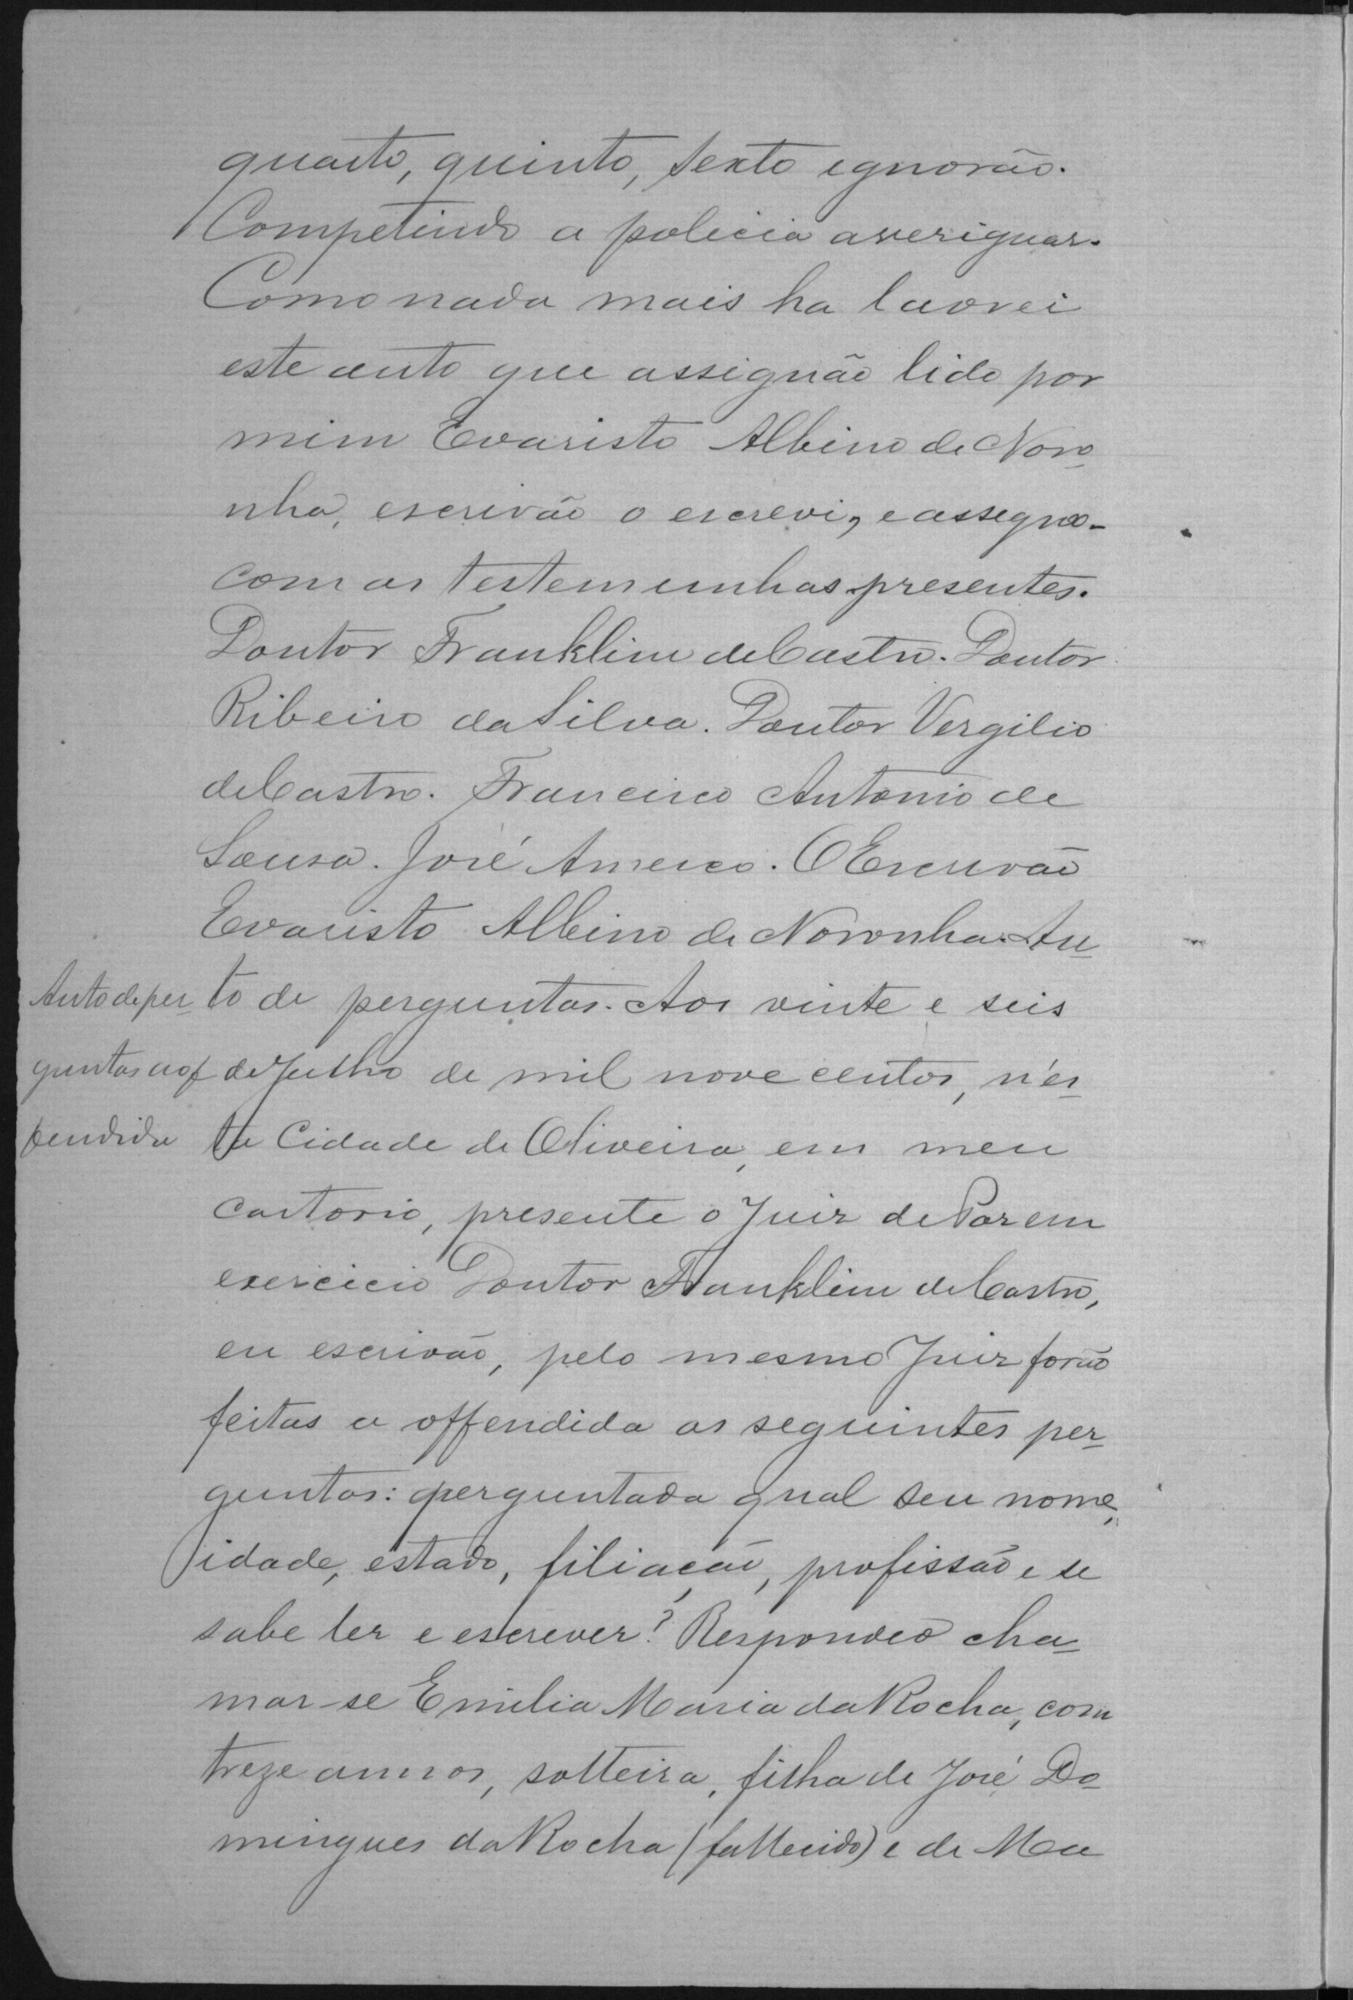 quarto, quinto, sexto ignorão.
Competindo a policia averiguar.
Como nada mais ha lavrei
este auto que assignão lido por
mim Evaristo Albino de Noro
nha, escrivão o escrevi, e assegno
com as testemunhas presentes.
Doutor Franklim de Castro. Doutor
Ribeiro da Silva. Doutor Vergilio
de Castro. Francisco Antonio de
Sousa. José Americo. O Escrivão
Evaristo Albino de Noronha. Au
Auto de per
to de perguntas. Aos vinte e seis
guntas a of
de Julho de mil nove centos, n'es
fendida
ta Cidade de Oliveira, em meu
cartorio, presente o Juiz de Paz em
exercicio Doutor Franklim de Castro,
eu escrivão, pelo mesmo Juiz forão
feitas a offendida as seguintes per
guntas: perguntada qual seu nome,
idade, estado, filiação, profissão e se
sabe ler e escrever? Respondeo cha
mar-se Emilia Maria da Rocha, com
treze annos, solteira, filha de José Do
mingues da Rocha (fallecido) e de Ma